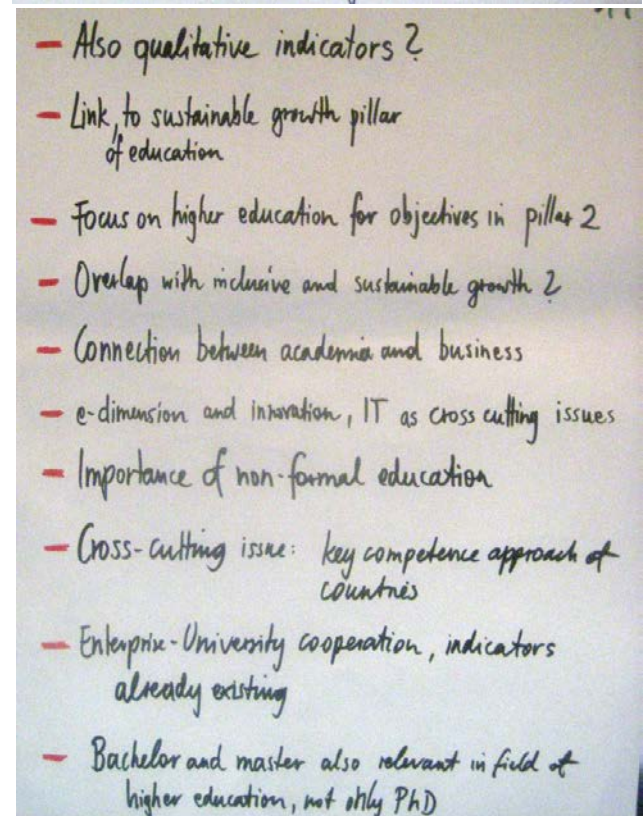 – Also qualitative indicators?
– Link to sustainable growth pillar
of education
– Focus on higher education for objectives in pillar 2
– Overlap with inclusive and sustainable growth?
– Connection between academia and business
– e-dimension and innovation, IT as cross cutting issues
– Importance of non-formal education
– Cross-cutting issue: key competence approach of
countries
– Enterprise-University cooperation, indicators
already existing
– Bachelor and master also relevant in field of
higher education, not only PhD